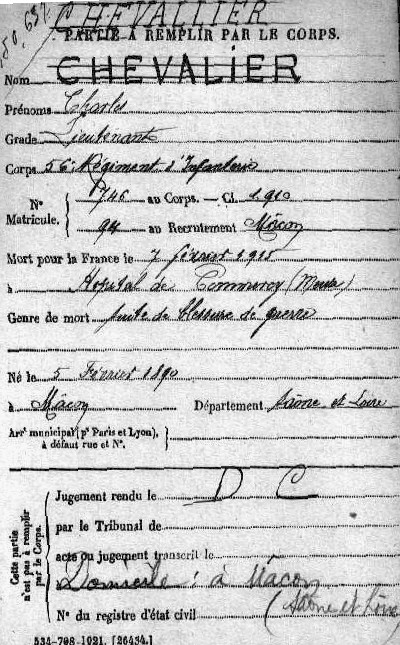 CHEVALLIER
PARTIE À REMPLIR PAR LE CORPS.
Nom CHEVALIER
Prénoms Charles
Grade Lieutenant
Corps 56e Régiment d'Infanterie
N° Matricule. 1746 au Corps. — Cl. 1910
94 au Recrutement Mâcon
Mort pour la France le 7 février 1915
à Hopital de Commercy (Meuse)
Genre de mort suite de blessure de guerre
Né le 5 Février 1890
à Mâcon Département Saône et Loire
Arrt municipal (pr Paris et Lyon), à défaut rue et N°.
Cette partie n'est pas à remplir par le Corps.
Jugement rendu le D C
par le Tribunal de
acte ou jugement transcrit le
Domicile : à Mâcon
(Saône et Loire
N° du registre d'état civil
534-708-1921. [26434.]